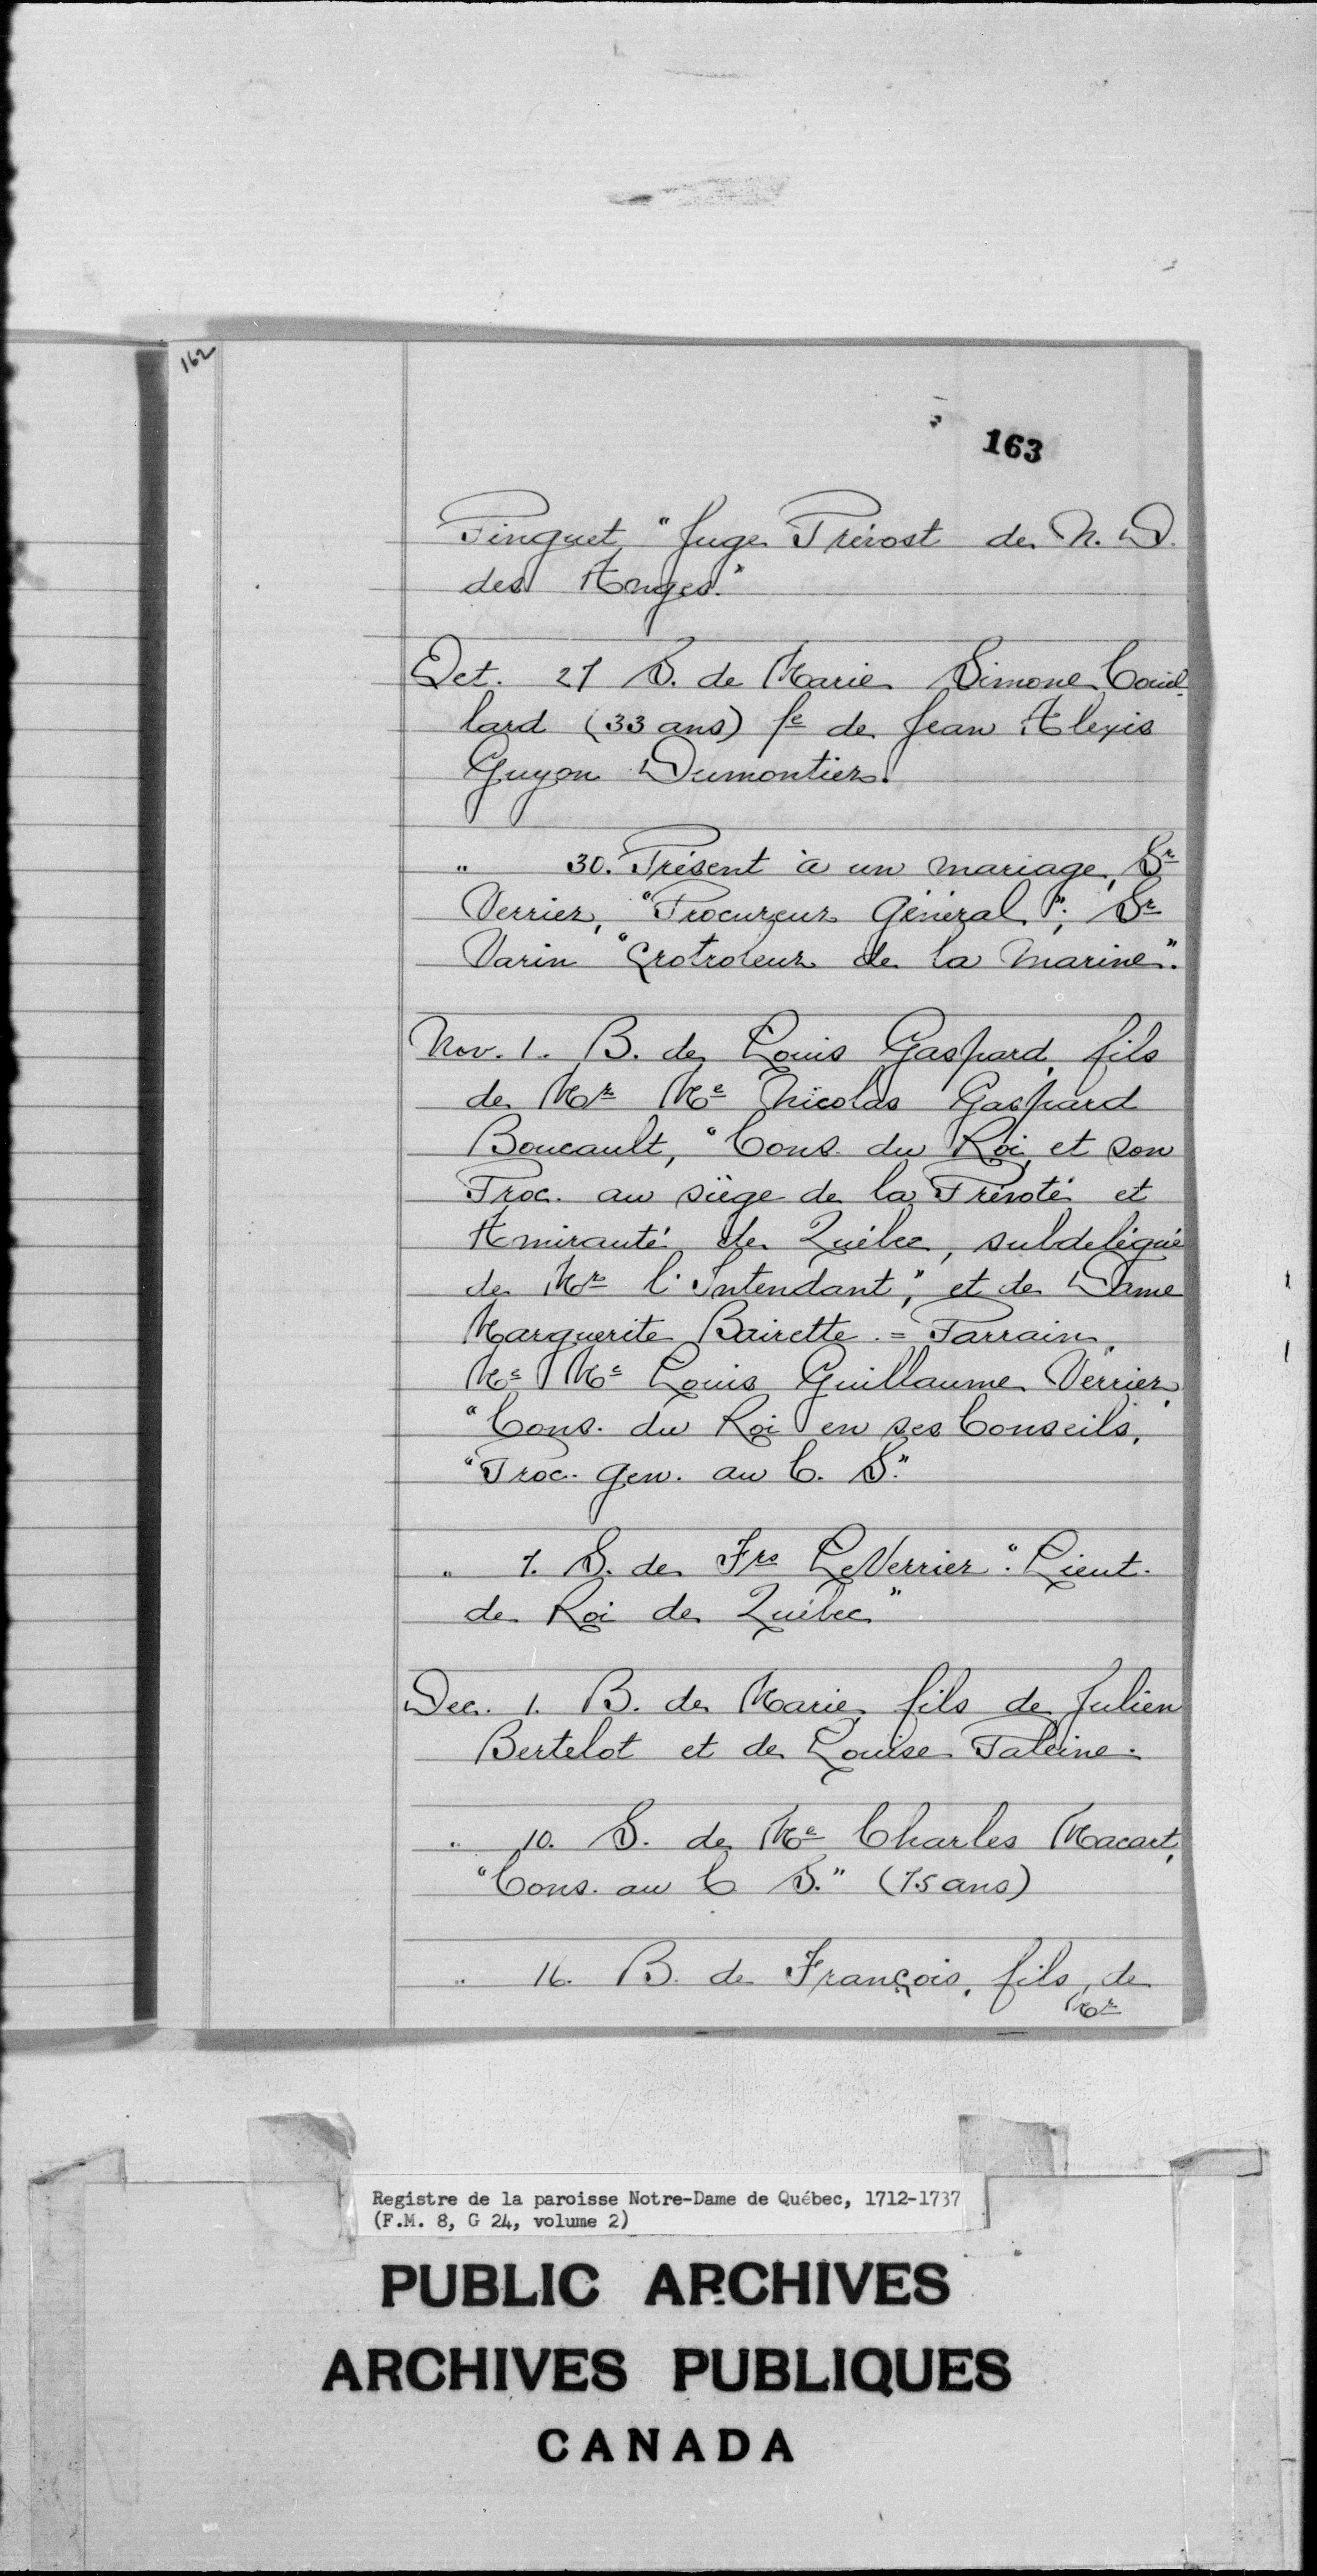 162
163
Pinguet, "Juge Prévost de N. D.
des Anges."
Oct. 27 S. de Marie Simone Couil-
lard (33 ans) fe de Jean Alexis
Guyon Dumontier.
" 30. Présent à un mariage, Sr
Verrier, "Procureur Général"; Sr
Varin "Crotroleur de la Marine".
Nov. 1. B. de Louis Gaspard, fils
de Mr Me Nicolas Gaspard
Boucault, "Cons. du Roi, et son
Proc. au siège de la Prévoté et
Amirauté de Québec, subdelégué
de Mr l'Intendant", et de Dame
Marguerite Bairette. = Parrain,
Me Me Louis Guillaume Verrier,
"Cons. du Roi en ses Conseils,
"Proc. Gen. au C. S."
" 7. S. de Frs LeVerrier "Lieut.
de Roi de Québec"
Dec. 1. B. de Marie, fils de Julien
Bertelot et de Louise Paleine.
" 10. S. de Me Charles Macart,
"Cons. au C S." (75 ans)
" 16. B. de François, fils de
Mr
Registre de la paroisse Notre-Dame de Québec, 1712-1737
(F.M. 8, G 24, volume 2)
PUBLIC ARCHIVES
ARCHIVES PUBLIQUES
CANADA